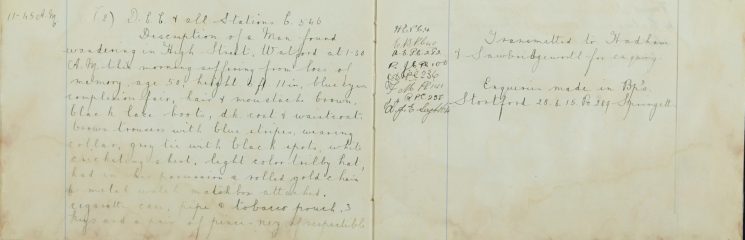 11-45 A.M.
(2) D.C.C & all Stations E. 546
Description of a Man found
wandering in High Street, Watford at 1-30
A.M. this morning suffering from loss of
memory, age 50, height 5 ft 11 in, blue eyes
complexion fair, hair & moustache brown,
black lace boots, dk coat & waistcoat,
brown trousers with blue stripes, wearing
collar, grey tie with black spots, white
cricketing shirt, light color trilby hat,
had in his possession a rolled gold chain
& metal watch matchbox attached,
cigarette case, pipe & tobacco pouch, 3
keys and a pair of pince-nez of respectable
P.C. 282
P.C. 100
P.C. 236
PC 141
PC 238
Transmitted to Hadham
& Sawbridgeworth for enquiry.
Enquiries made in Bp's.
Stortford 28.6.15. Pc 289